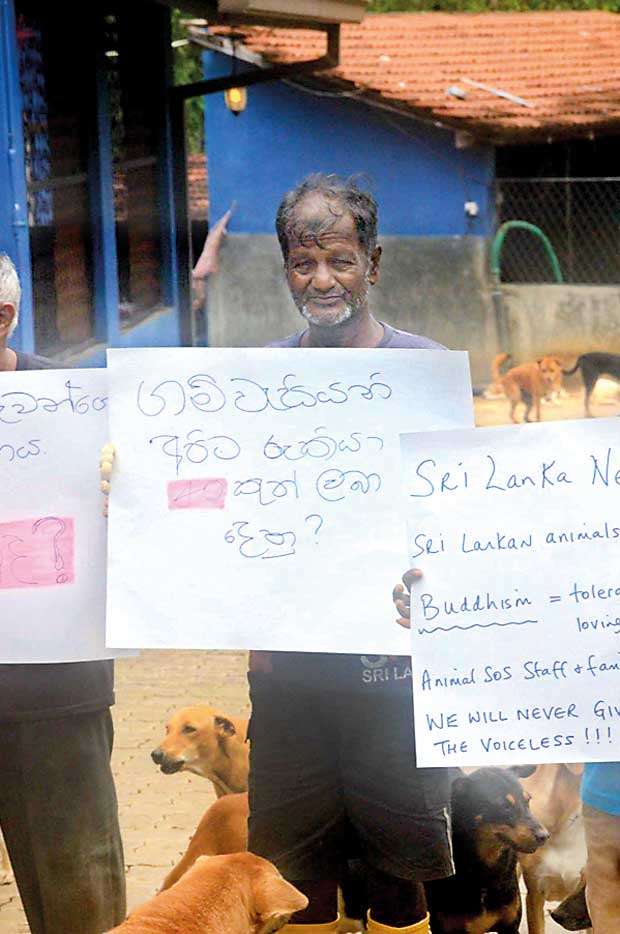 ගම් වැසියන්
අපිට රැකියා
40 කුත් ලබා
දෙනු?
SRI LANKA NE
SRI LANKAN ANIMALS
Buddhism = tolera
loving
Animal SOS Staff & fam
WE WILL NEVER GIV
THE VOICELESS !!!
SRI LA